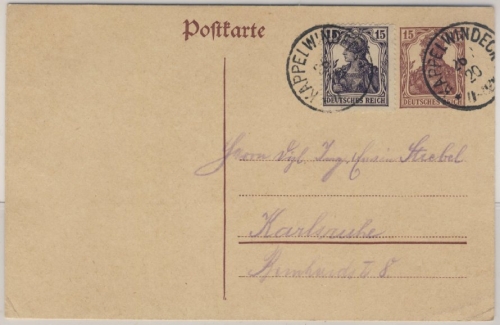 Postkarte
15
DEUTSCHES REICH
15
DEUTSCHES REICH
KAPPELWINDECK
KAPPELWINDECK
20
Herrn Dipl. Ing. Erwin Stiebel
Karlsruhe
8